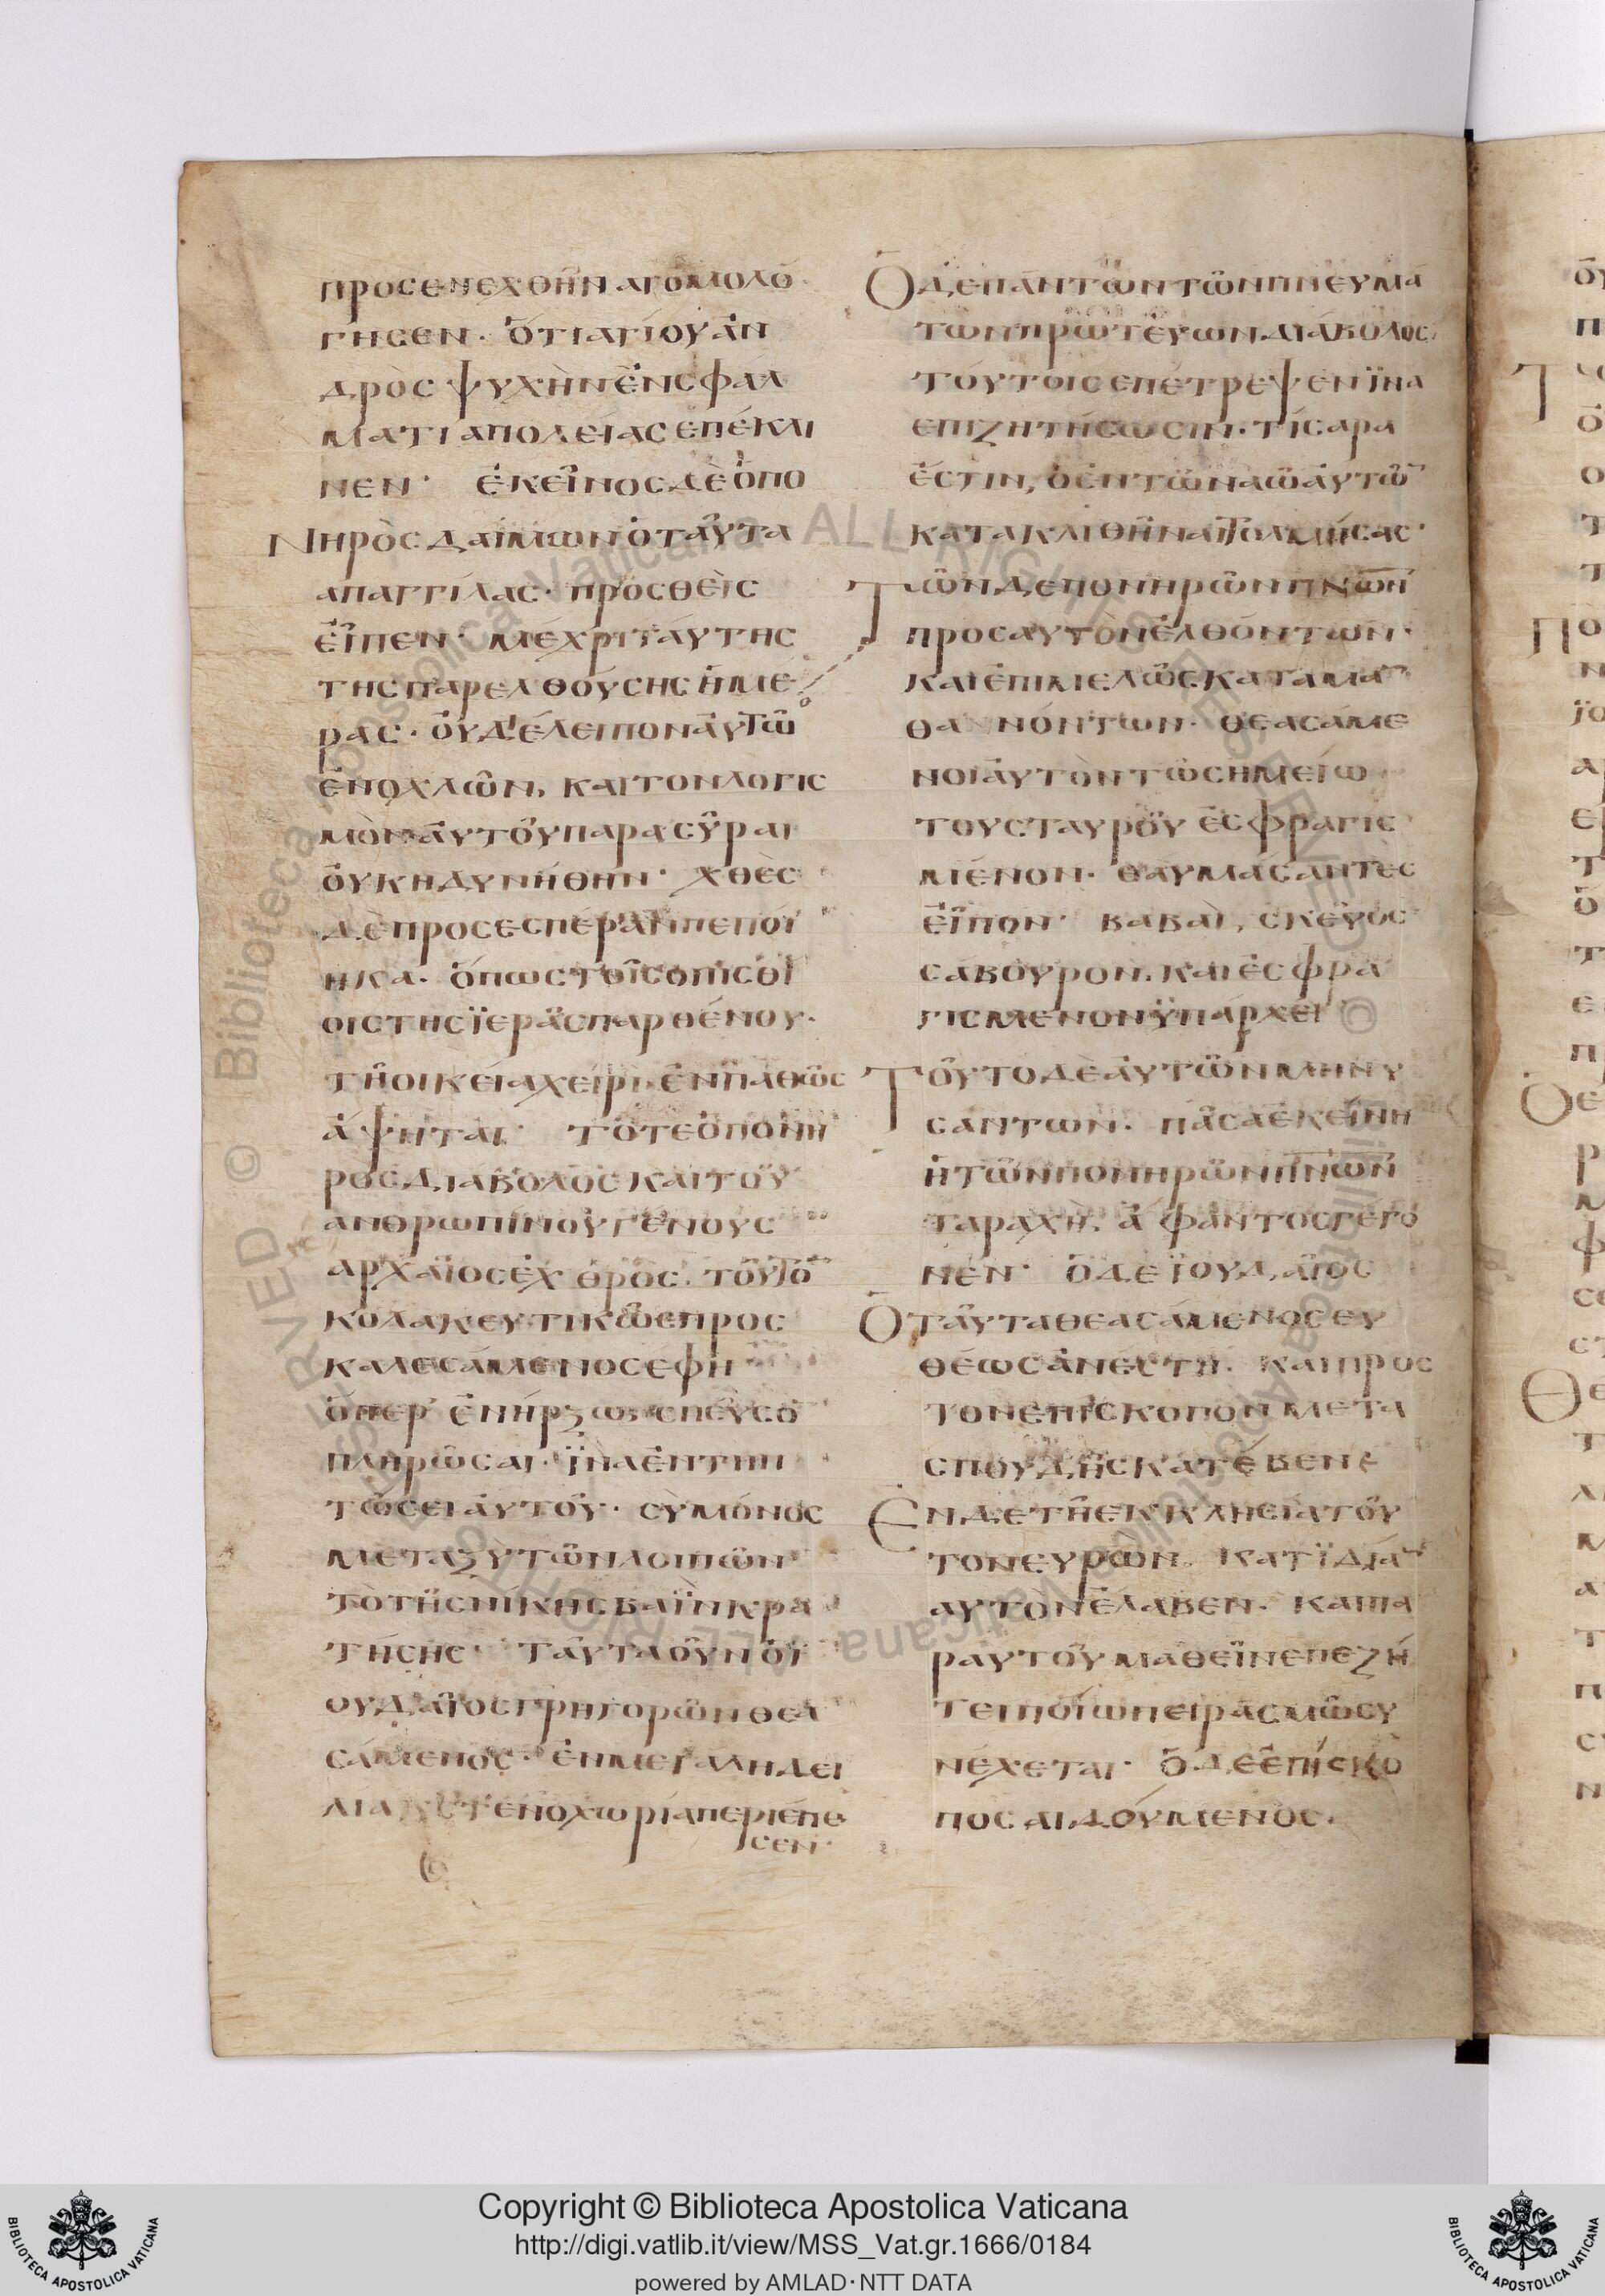 προσενεχθῆναι ὁμολό
γησεν· ὅτι ἁγίου ἀν
δρὸς ψυχὴν ἐν σφάλ
ματι ἀπολείας ἐπέκλι
νεν· ἐκεῖνος δὲ ὁ πο
Νηρὸς δαίμων ὁ ταῦτα
ἀπαγγίλας· προσθεὶς
εἶπεν· μέχρι ταύτης
τῆς παρελθούσης ἡμέ
ρας· οὐδ' ἔλειπον αὐτῶ
ἐνοχλῶν, καὶ τὸν λογισ
μὸν αὐτοῦ παρασύραι
οὐκ ηδυνήθην· χθὲς
δὲ πρὸς ἑσπέραν πεποί
ηκα· ὅπως τοῖς ὀπισθί
οις τῆς ϊερᾶς παρθένου·
τῆ οἰκεία χειρὶ ἐνπαθῶς
ἅψηται· τότε ὁ πονη
ρὸς διάβολος καὶ τοῦ
ἀνθρωπίνου γένους
ἀρχαῖος ἐχθρὸς. τοῦτο
κολακευτικῶς προς
καλεσάμενος ἔφη
ὅπερ ἐνήρξω σπεῦσο
πληρῶσαι· ϊνα ἐν τη π
τώσει αὐτοῦ· σὺ μόνος
μεταξὺ τῶν λοιπῶν
τὸ τῆς νίκης βαῒν κρα
τήσης· ταῦτα οὖν ὁ ϊ
ουδαῖος γρηγορῶν θεα
σάμενος· ἐν μεγάλη δει
λία στενοχωρία περιέπε
σεν·
Ὁ δὲ πάντων τῶν πνευμά
των πρωτεύων διάβολος,
τούτοις ἐπέτρεψεν ϊνα
ἐπιζητήσωσιν· τίς ἄρα
ἐστιν, ὁ ἐν τῶ ναῶ αὐτῶ
κατακλιθῆναι τολμήσας·
Τῶν δὲ πονηρῶν πνων
πρὸς αὐτὸν ἐλθόντων·
καὶ ἐπιμελῶς καταμα
θανόντων· θεασάμε
νοι αὐτὸν τῶ σημείω
τοῦ σταυροῦ ἐσφραγισ
μένον· θαυμάσαντες
εἶπον· βαβαὶ, σκεῦος
σαβουρον. καὶ ἐσφρα
γισμένον ϋπάρχει
Τοῦτο δὲ αὐτῶν μηνυ
σάντων· πᾶσα ἐκείνη
ἡ τῶν πονηρῶν πνων
ταραχὴ. ἄφαντος γεγό
νεν· ὁ δὲ ϊουδαῖος
Ὁ ταῦτα θεασάμενος εὐ
θέως ἀνέστη. καὶ πρὸς
τὸν ἐπίσκοπον μετὰ
σπουδῆς κατέβεν·
Ἐν δὲ τῆ ἐκκλησία τοῦ
τον εὑρὼν. κατ ϊδίαν
αὐτὸν ἔλαβεν· καὶ πα
ρ αὐτοῦ μαθεῖν ἐπεζή
τει ποίω πειρασμῶ συ
νέχεται· ὁ δὲ ἐπίσκο
πος αἰδούμενος.
Copyright © Biblioteca Apostolica Vaticana
http://digi.vatlib.it/view/MSS_Vat.gr.1666/0184
powered by AMLAD·NTT DATA
BIBLIOTECA APOSTOLICA VATICANA
BIBLIOTECA APOSTOLICA VATICANA